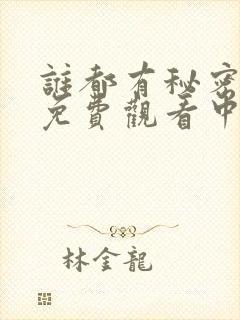 誰都有秘密
免費觀看中
林金龍